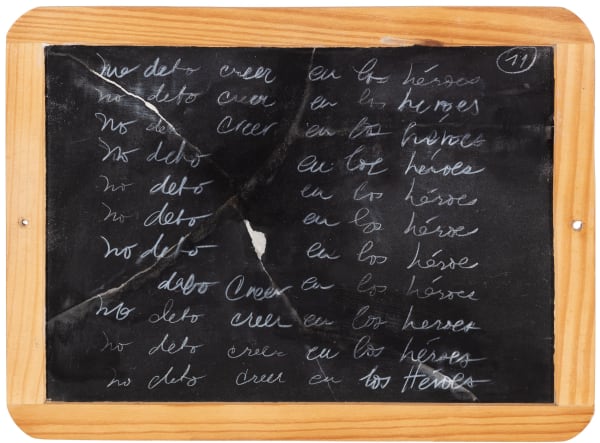 11
no debo creer en los héroes
no debo creer en los heroes
no debo creer en los héroes
no debo en los héroes
no debo en los héroes
no debo en los héroes
no debo en los héroe
debo Creer en los héroe
no debo creer en los heroes
no debo creer en los héroes
no debo creer en los Héroes